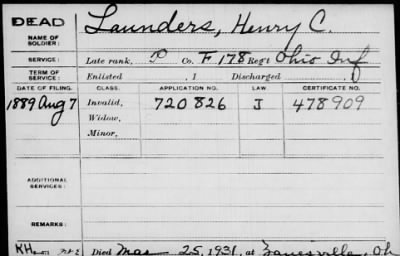 DEAD
NAME OF SOLDIER: Saunders, Henry C.
SERVICE: Late rank, P Co. F 178 Reg't Ohio Inf
TERM OF SERVICE: Enlisted , 1 Discharged , 1
DATE OF FILING. CLASS. APPLICATION NO. LAW. CERTIFICATE NO.
1889 Aug 7 Invalid, 720826 J 478909
Widow,
Minor,
ADDITIONAL SERVICES:
REMARKS:
Died Mar 25, 1931, at Zanesville, Oh